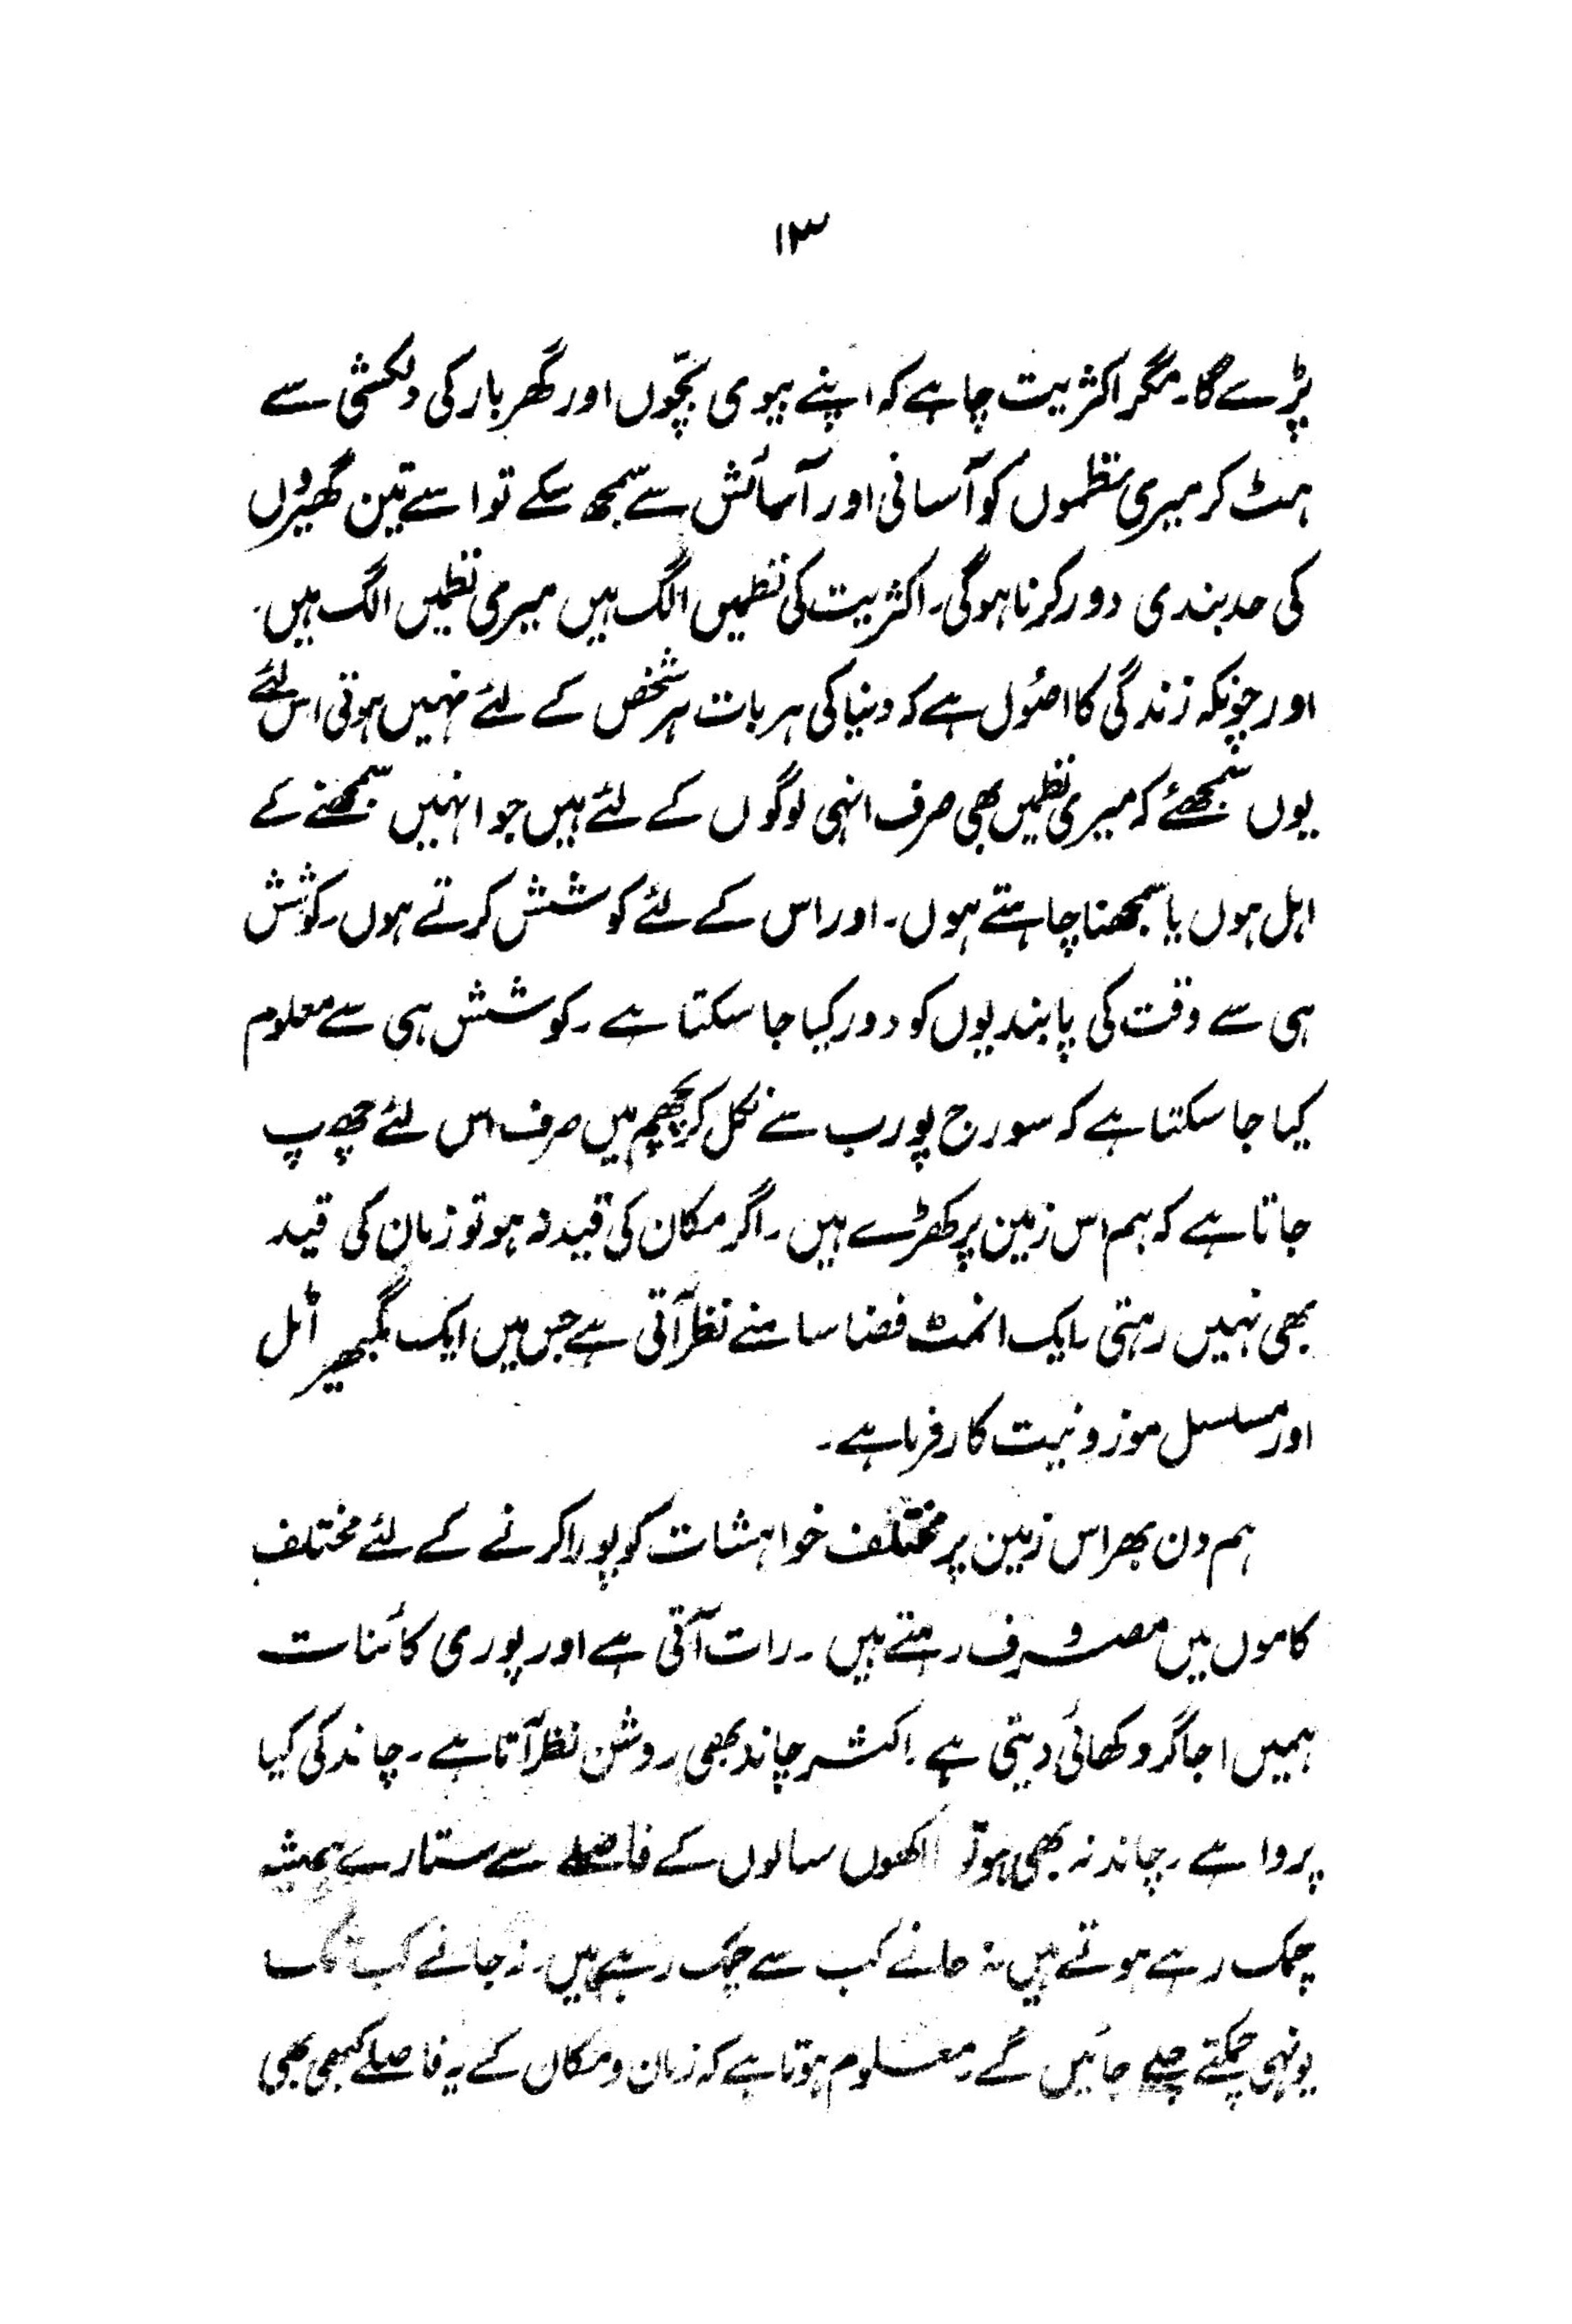 ۱۳
پڑے گا۔ مگر اکثریت چاہے کہ اپنے بیوی بچّوں اور گھر بار کی دلکشی سے
ہٹ کر میری نظموں کو آسانی اور آسائش سے سمجھ سکے تو اسے تین گھیروں
کی حد بندی دور کرنا ہو گی۔ اکثریت کی نظمیں الگ ہیں میری نظمیں الگ ہیں۔
اور چونکہ زندگی کا اصُول ہے کہ دنیا کی ہر بات ہر شخص کے لئے نہیں ہوتی اس لئے
یوں سمجھئے کہ میری نظمیں بھی صرف انہی لوگوں کے لئے ہیں جو انہیں سمجھنے کے
اہل ہوں یا سمجھنا چاہتے ہوں۔ اور اس کے لئے کوشش کرتے ہوں۔ کوشش
ہی سے وقت کی پابندیوں کو دور کیا جا سکتا ہے۔ کوشش ہی سے معلوم
کیا جا سکتا ہے کہ سورج پورب سے نکل کر پچھم میں صرف اس لئے چھپ
جاتا ہے کہ ہم اس زمین پر کھڑے ہیں۔ اگر مکان کی قید نہ ہو تو زمان کی قید
بھی نہیں رہتی۔ ایک انمٹ فضا سامنے نظر آتی ہے جس میں ایک گمبھیر اٹل
اور مسلسل موزونیت کارفرما ہے۔
ہم دن بھر اس زمین پر مختلف خواہشات کو پورا کرنے کے لئے مختلف
کاموں میں مصروف رہتے ہیں۔ رات آتی ہے اور پوری کائنات
ہمیں اجاگر دکھائی دیتی ہے۔ اکثر چاند بھی روشن نظر آتا ہے۔ چاند کی کیا
پروا ہے۔ چاند نہ بھی ہو تو لاکھوں سالوں کے فاصلے سے ستارے ہمیشہ
چمک رہے ہوتے ہیں نہ جانے کب سے چمک رہے ہیں۔ نہ جانے کب تک
یونہی چمکتے چلے جائیں گے۔ معلوم ہوتا ہے کہ زمان و مکاں کے یہ فاصلے کبھی بھی